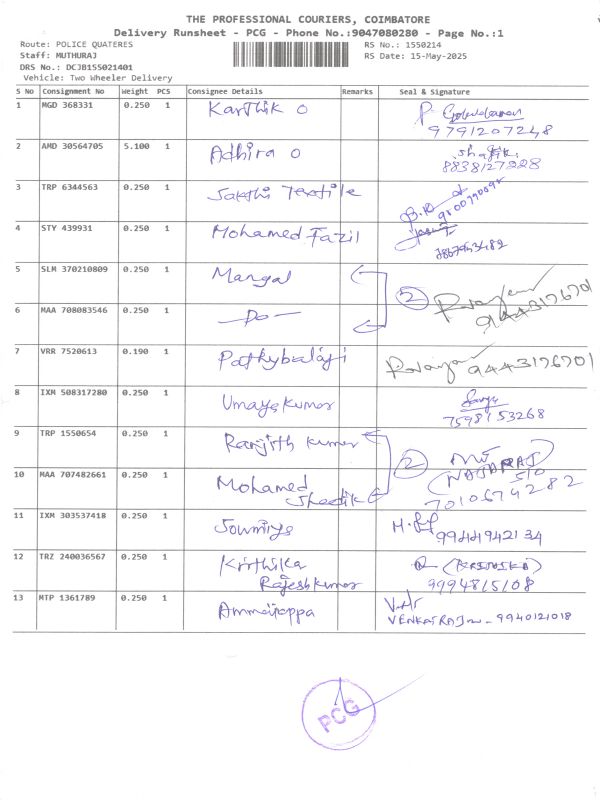 THE PROFESSIONAL COURIERS, COIMBATORE
Delivery Runsheet - PCG - Phone No.:9047080280 - Page No.:1
Route: POLICE QUATERES RS No.: 1550214
Staff: MUTHURAJ RS Date: 15-May-2025
DRS No.: DCJB155021401
Vehicle: Two Wheeler Delivery
S No Consignment No Weight PCS Consignee Details Remarks Seal & Signature
1 MGD 368331 0.250 1 Karthik O
9791207248
2 AMD 30564705 5.100 1 Adhira O Shafik
8838127228
3 TRP 6344563 0.250 1 Sakthi Textile
4 STY 439931 0.250 1 Mohamed Fazil
5 SLM 370210809 0.250 1 Mangal 2
6 MAA 708083546 0.250 1 -Do- 9443176701
7 VRR 7520613 0.190 1 Pathybalaji 9443176701
8 IXM 508317280 0.250 1 Umayakumar
7598153268
9 TRP 1550654 0.250 1 Ranjith Kumar 2
10 MAA 707482661 0.250 1 Mohamed
7010674282
11 IXM 303537418 0.250 1 Sowmiya 9944942134
12 TRZ 240036567 0.250 1 Kirthika
Rajeshkumar 9994815108
13 MTP 1361789 0.250 1 Ammaiappa
VENKATRAJ - 9940121018
PCG